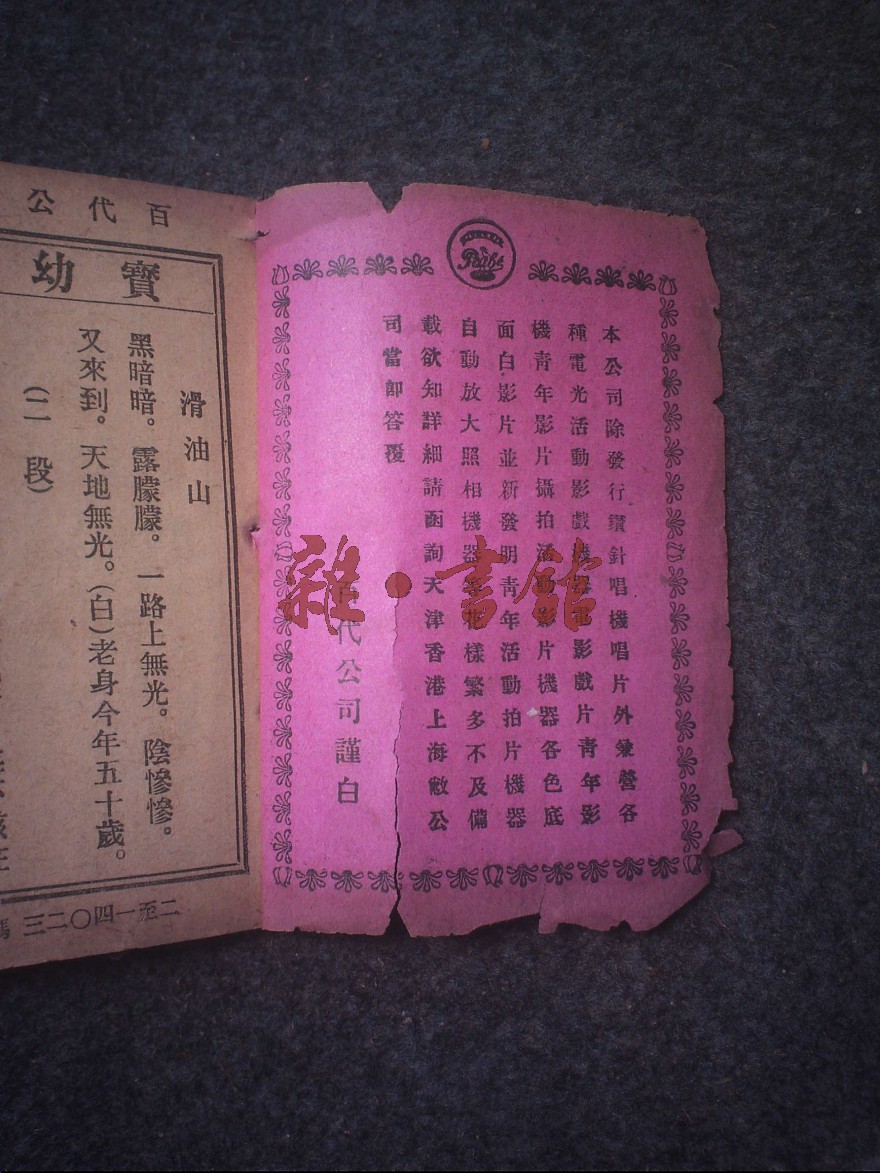 Pathé
本公司除發行鑽針唱機唱片外兼營各
種電光活動影戲機器電影戲片青年影
機青年影片攝拍活動影片機器各色底
面白影片並新發明青年活動拍片機器
自動放大照相機器
樣繁多不及備
載欲知詳細請函詢天津香港上海敝公
司當卽答覆
百代公司謹白
雜·書館
百代公
寶幼
滑油山
黑暗暗。露朦朦。一路上無光。陰慘慘。
又來到。天地無光。(白)老身今年五十歲。
(二段)
三二〇四一至二